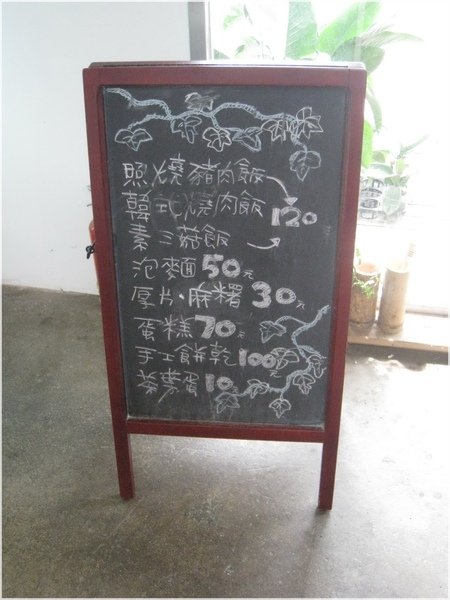 照燒豬肉飯
韓式燒肉飯 120
素三菇飯
泡麵 50元
厚片·麻糬 30元
蛋糕 70元
手工餅乾 100元
茶葉蛋 10元